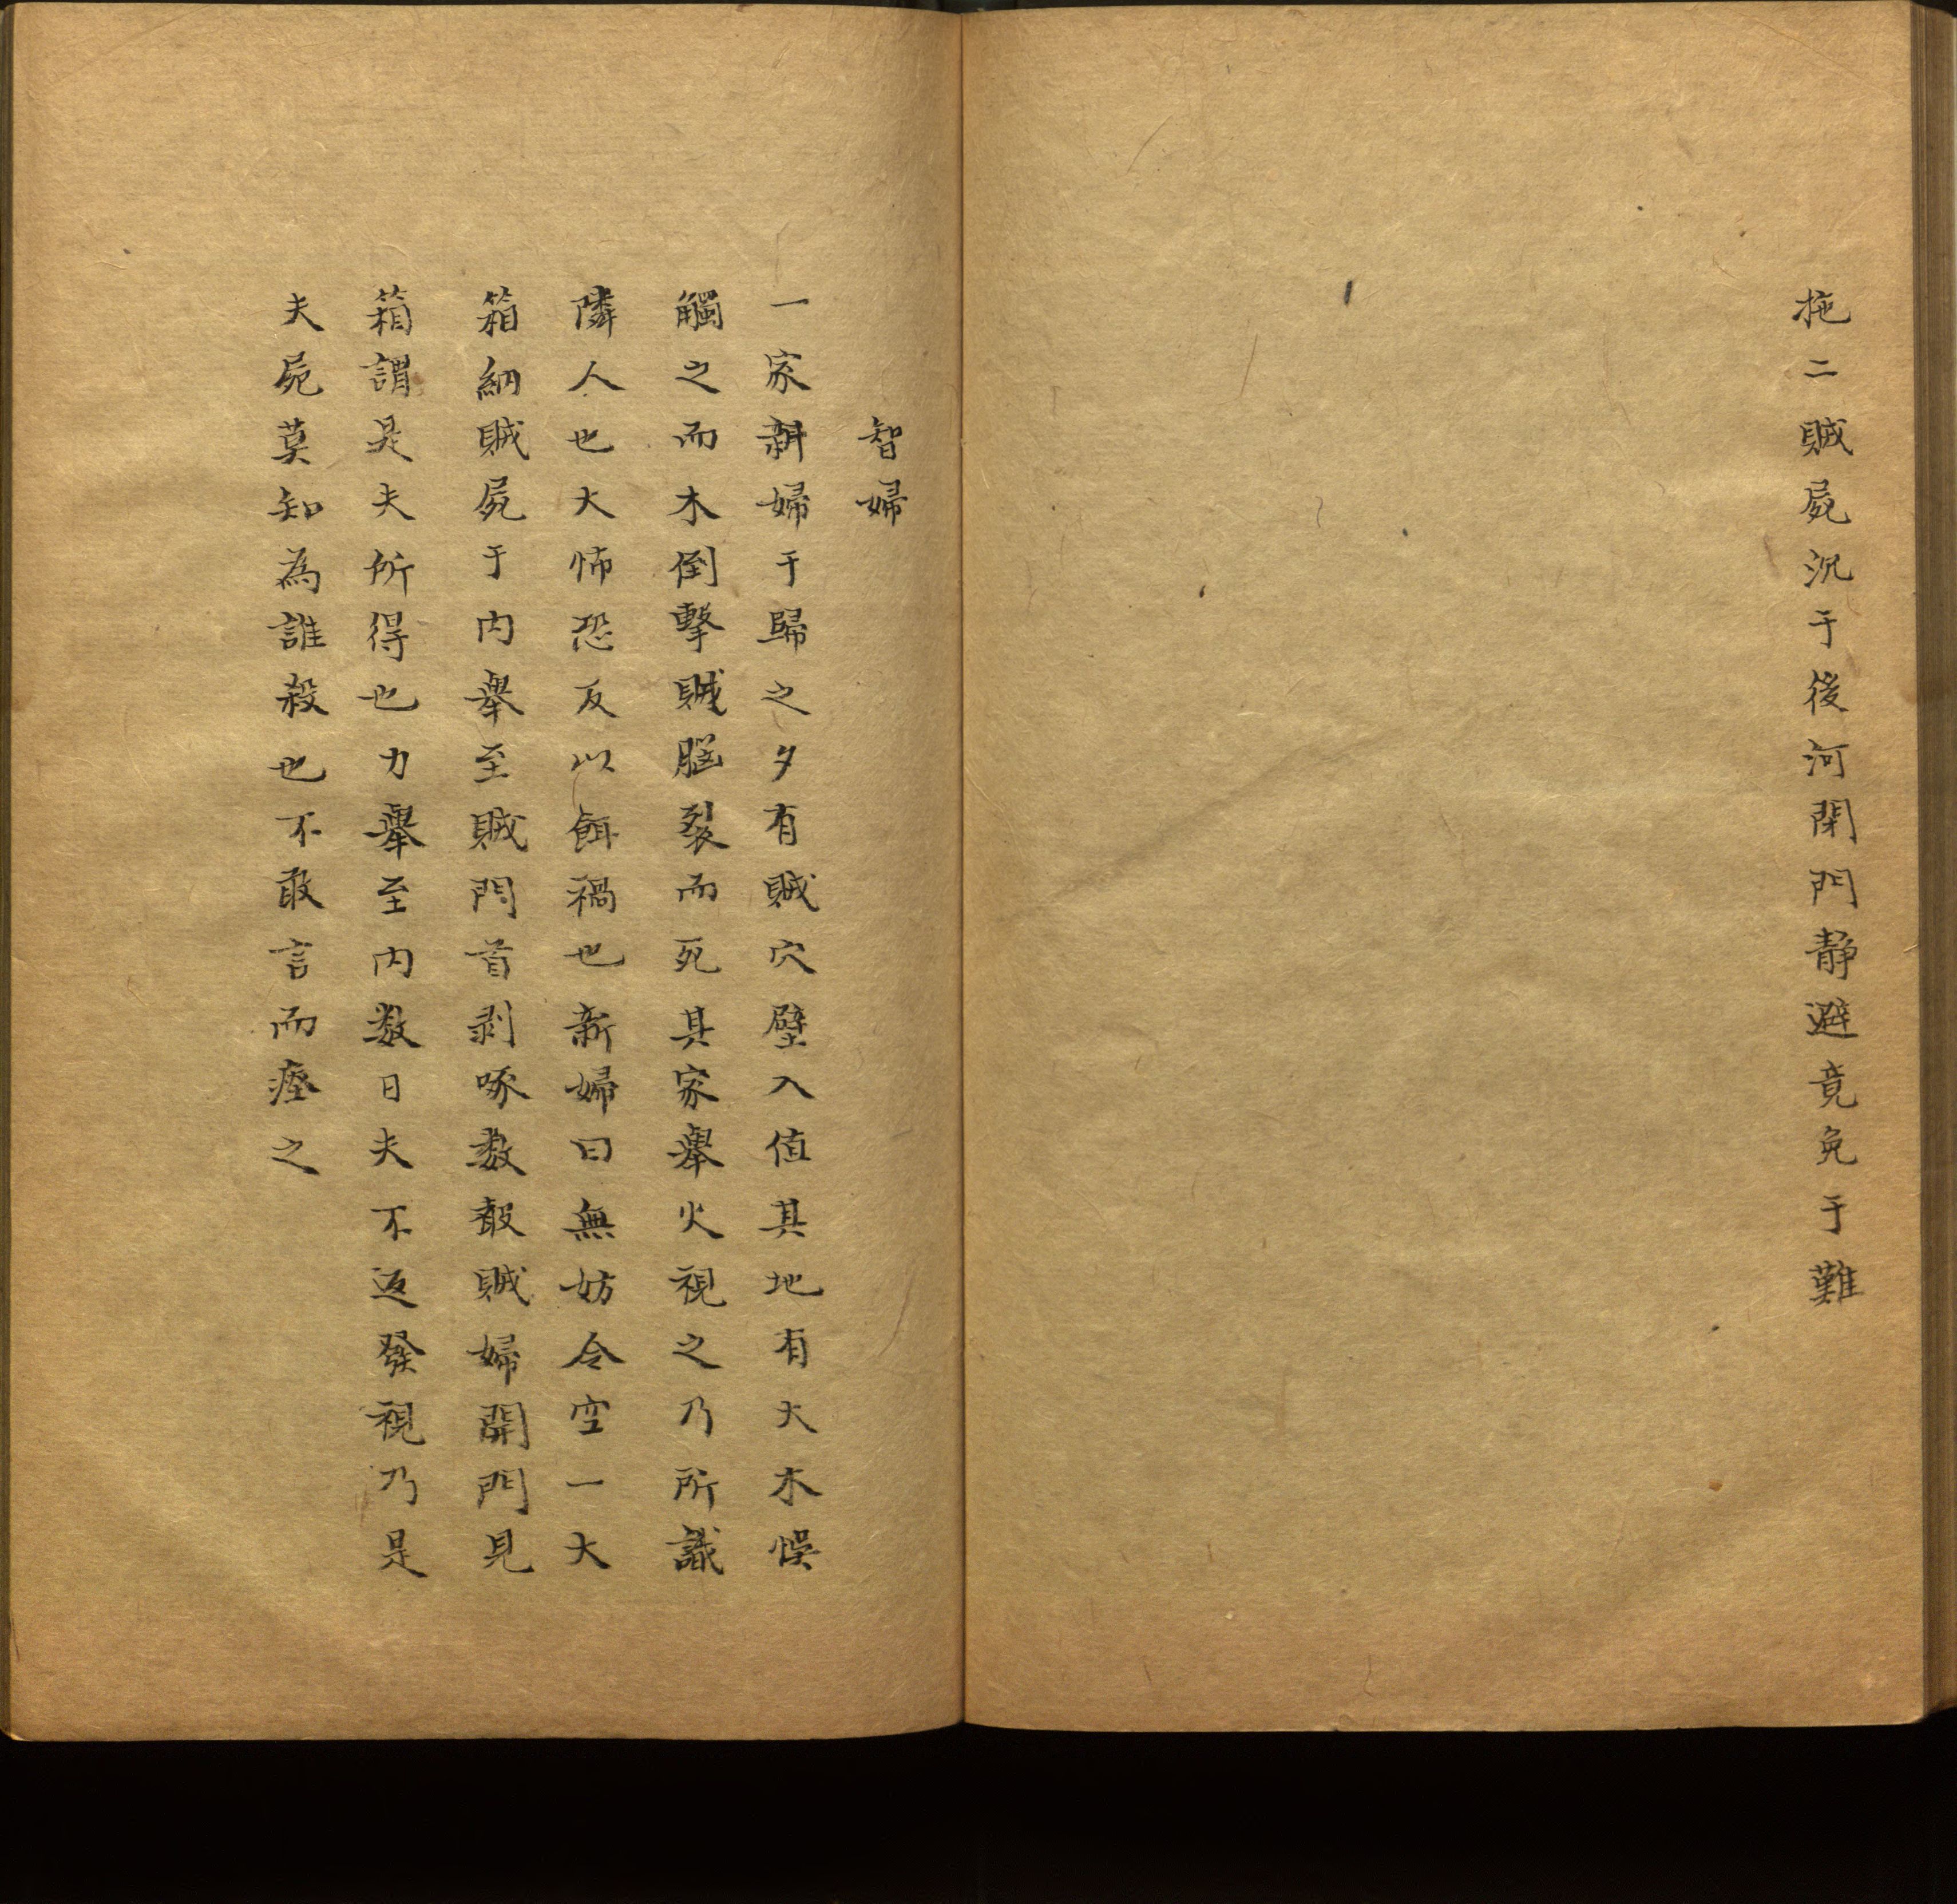 拖二賊屍沉于後河閉門靜避竟免于難
智婦
一家新婦于歸之夕有賊穴壁入值其地有大木悞
觸之而木倒擊賊腦裂而死其家舉火視之乃所識
隣人也大怖恐反以餌禍也新婦曰無妨令空一大
箱納賊屍于内舉至賊門首剥啄數聲賊婦開門見
箱謂是夫所得也力舉至内数日夫不返發視乃是
夫屍莫知為誰殺也不敢言而瘞之